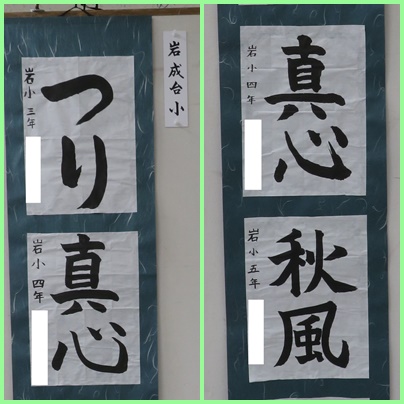 岩成台小
つり
岩小三年
真心
岩小四年
真心
岩小四年
秋風
岩小五年